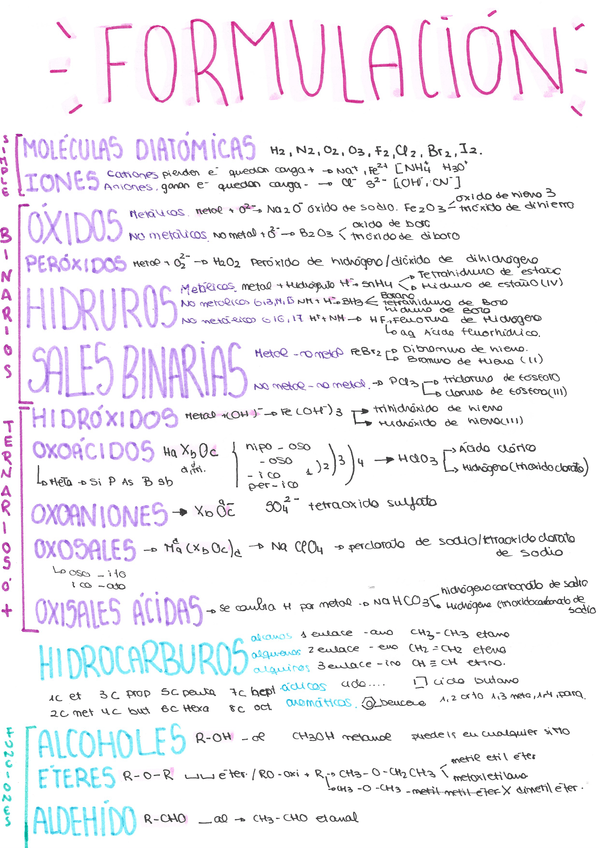 FORMULACIÓN
SIMPLE
MOLÉCULAS DIATÓMICAS H2, N2, O2, O3, F2, Cl2, Br2, I2.
IONES Cationes pierden e⁻ quedan carga + → Na⁺, Fe²⁺ [NH4⁺ H3O⁺
Aniones, ganan e⁻ quedan carga - → Cl⁻ S²⁻ [OH⁻, CN⁻]
BINARIOS
ÓXIDOS Metálicos. metal + O²⁻ → Na2O óxido de sodio. Fe2O3 óxido de hierro 3
trióxido de dihierro
No metálicos. No metal + O²⁻ → B2O3 óxido de boro
trióxido de diboro
PERÓXIDOS metal + O2²⁻ → H2O2 Peróxido de hidrógeno/dióxido de dihidrógeno
HIDRUROS Metálicos. metal + Hidrógeno H⁻ → SnH4 Tetrahidruro de estaño
Hidruro de estaño (IV)
No metálicos G13,14,15 NM + H⁻ → BH3 Borano
hidruro de Boro
No metálicos G16, 17 H⁺ + NM → HF, Fluoruro de Hidrógeno
aq Ácido fluorhídrico.
SALES BINARIAS Metal - no metal FeBr2 Dibromuro de hierro.
Bromuro de hierro (II)
No metal - no metal. → PCl3 tricloruro de fósforo
cloruro de fósforo (III)
TERNARIOS o +
HIDRÓXIDOS Metal + (OH)⁻ → Fe(OH⁻)3 trihidróxido de hierro
Hidróxido de hierro (III)
OXOÁCIDOS Ha Xb Oc hipo - oso
- oso
- ico
per - ico 1)2)3)4 → HClO3 Ácido clórico
Hidrógeno (trioxidoclorato)
Meta → Si P As B Sb
OXOANIONES → Xb Oc SO4²⁻ tetraoxido sulfato
OXOSALES → Ma (Xb Oc)d → Na ClO4 → perclorato de sodio/tetraoxidoclorato
de sodio
oso - ito
ico - ato
OXISALES ÁCIDAS → se cambia H por metal. → NaHCO3 hidrógenocarbonato de sodio
Hidrógeno (trioxidocarbonato de
sodio
HIDROCARBUROS alcanos 1 enlace - ano CH3-CH3 etano
alquenos 2 enlace - eno CH2=CH2 eteno
alquinos 3 enlace - ino CH≡CH etino.
1C et 3C prop 5C penta 7C hept cíclicos ciclo.... ciclo butano
2C met 4C but 6C Hexa 8C oct aromáticos. benceno 1,2 orto 1,3 meta, 1,4, para.
FUNCIONES
ALCOHOLES R-OH - ol CH3OH metanol puede is en cualquier sitio
ÉTERES R-O-R éter / RO-oxi + R CH3-O-CH2CH3 metil etil éter
metoxietano
CH3-O-CH3 metil metil éter X dimetil éter.
ALDEHÍDO R-CHO _al → CH3-CHO etanal